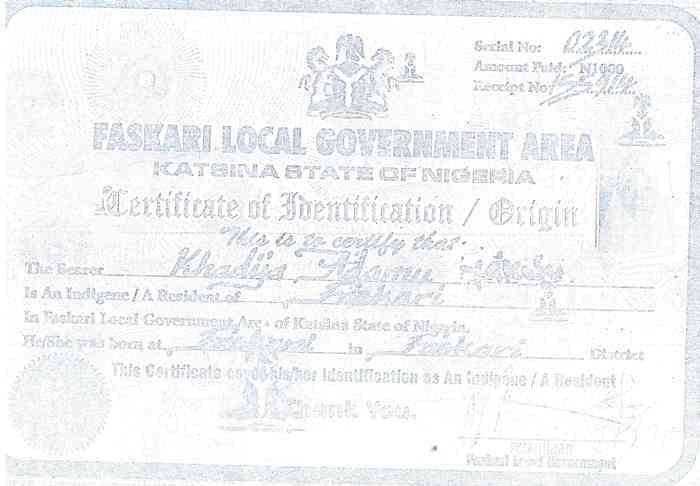 Serial No:
Amount Paid: N1000
Receipt No:
FASKARI LOCAL GOVERNMENT AREA
KATSINA STATE OF NIGERIA
Certificate of Identification / Origin
This is to certify that
The Bearer Khadija
Is An Indigene / A Resident of Faskari
In Faskari Local Government Area of Katsina State of Nigeria.
He/She was born at in Faskari District
This Certificate his/her Identification as An Indigene / A Resident
Thank You.
Faskari Local Government